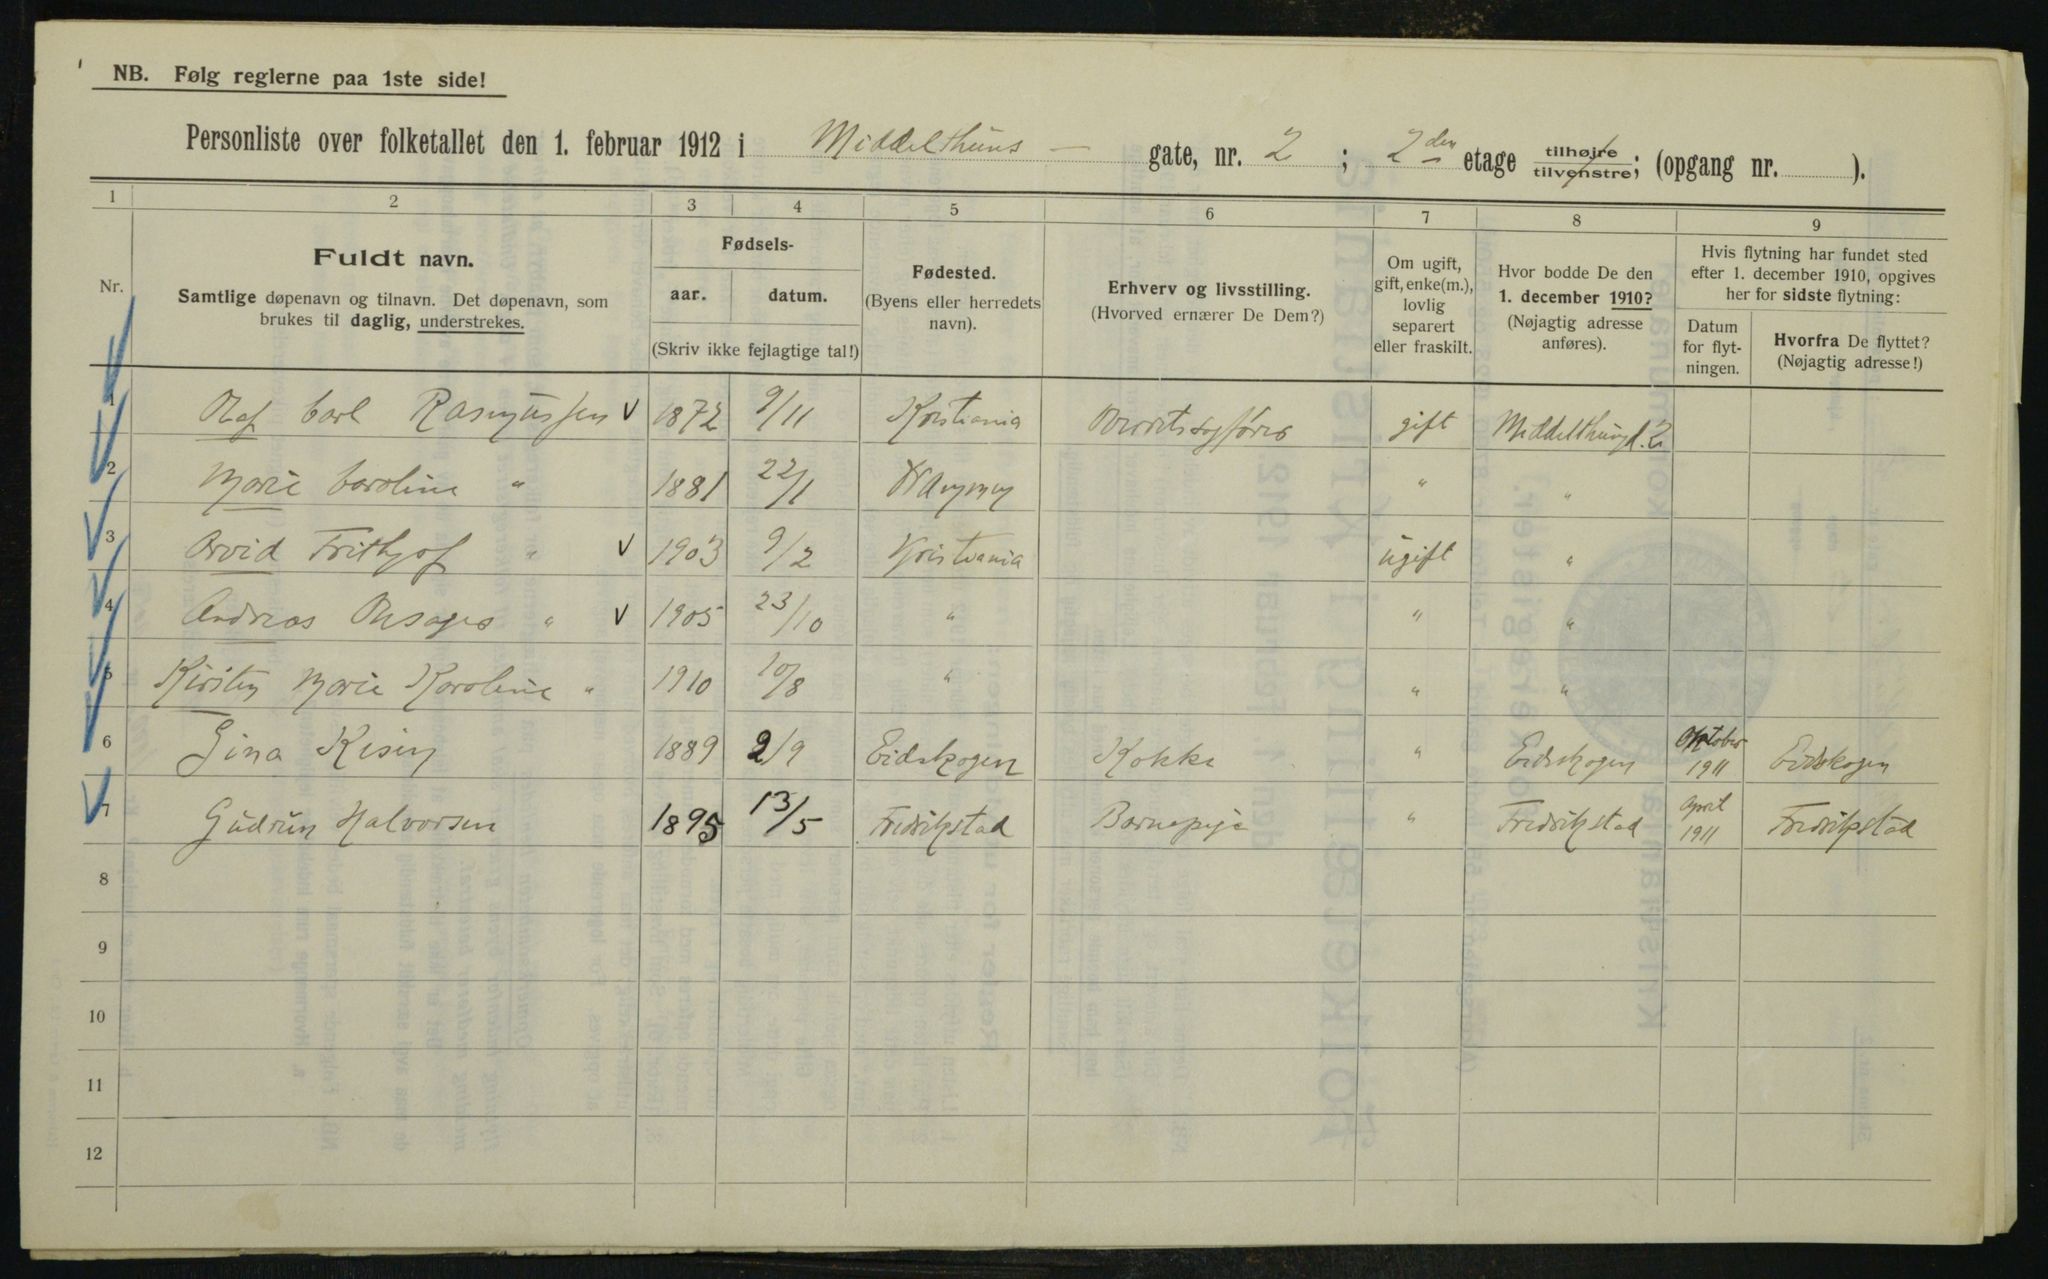 NB. Følg reglerne paa 1ste side!
Personliste over folketallet den 1. februar 1912 i Middelthuns — gate, nr. 2 ; 2den etage tilhøire tilvenstre; (opgang nr. ).
1 2 3 4 5 6 7 8 9
Nr.
Fuldt navn.
Samtlige døpenavn og tilnavn. Det døpenavn, som
brukes til daglig, understrekes.
Fødsels-
aar. datum.
(Skriv ikke fejlagtige tal!)
Fødested.
(Byens eller herredets
navn).
Erhverv og livsstilling.
(Hvorved ernærer De Dem?)
Om ugift,
gift, enke(m.),
lovlig
separert
eller fraskilt.
Hvor bodde De den
1. december 1910?
(Nøjagtig adresse
anføres).
Hvis flytning har fundet sted
efter 1. december 1910, opgives
her for sidste flytning:
Datum
for flyt-
ningen.
Hvorfra De flyttet?
(Nøjagtig adresse!)
1 Olaf Carl Rasmussen V 1872 9/11 Kristiania Overretssagfører gift Middelthunsg. 2
2 Marie Caroline " 1881 22/1 " "
3 Arvid Frithjof " V 1903 9/2 Kristiania ugift "
4 Andreas " V 1905 23/10 " " "
5 Kirsten Marie Karoline " 1910 10/8 " " "
6 Gina 1889 2/9 Eidskogen Kokke " Eidskogen Oktober 1911 Eidskogen
7 Gudrun Halvorsen 1895 13/5 Fredrikstad Barnepige " Fredrikstad April 1911 Fredrikstad
8
9
10
11
12